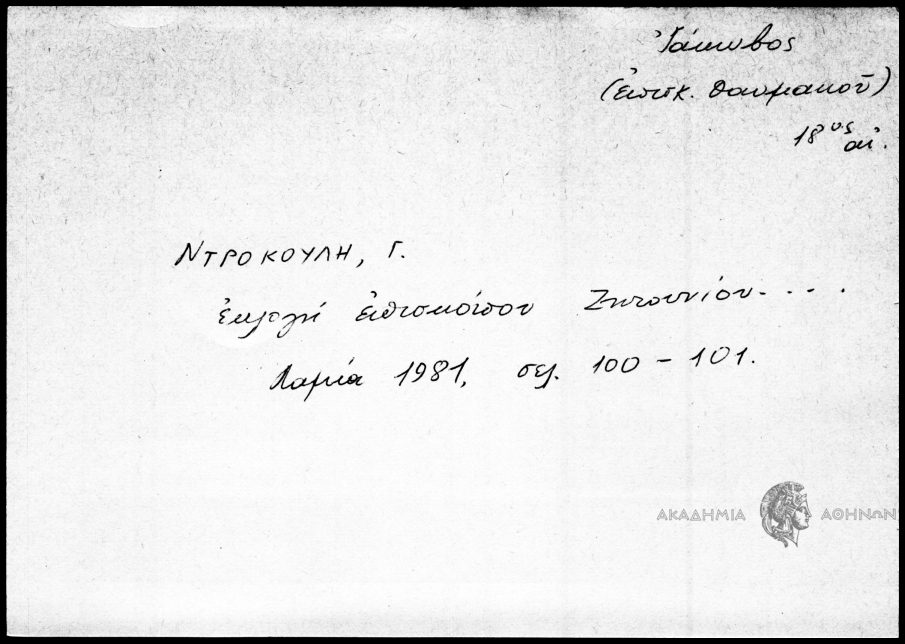 Ἰάκωβος
(ἐπισκ. Θαυμακοῦ)
18ος αἰ.
ΝΤΡΟΚΟΥΛΗ, Γ.
ἐκλογή ἐπισκόπου Ζητουνίου....
Λαμία 1981, σελ. 100 - 101.
ΑΚΑΔΗΜΙΑ ΑΘΗΝΩΝ